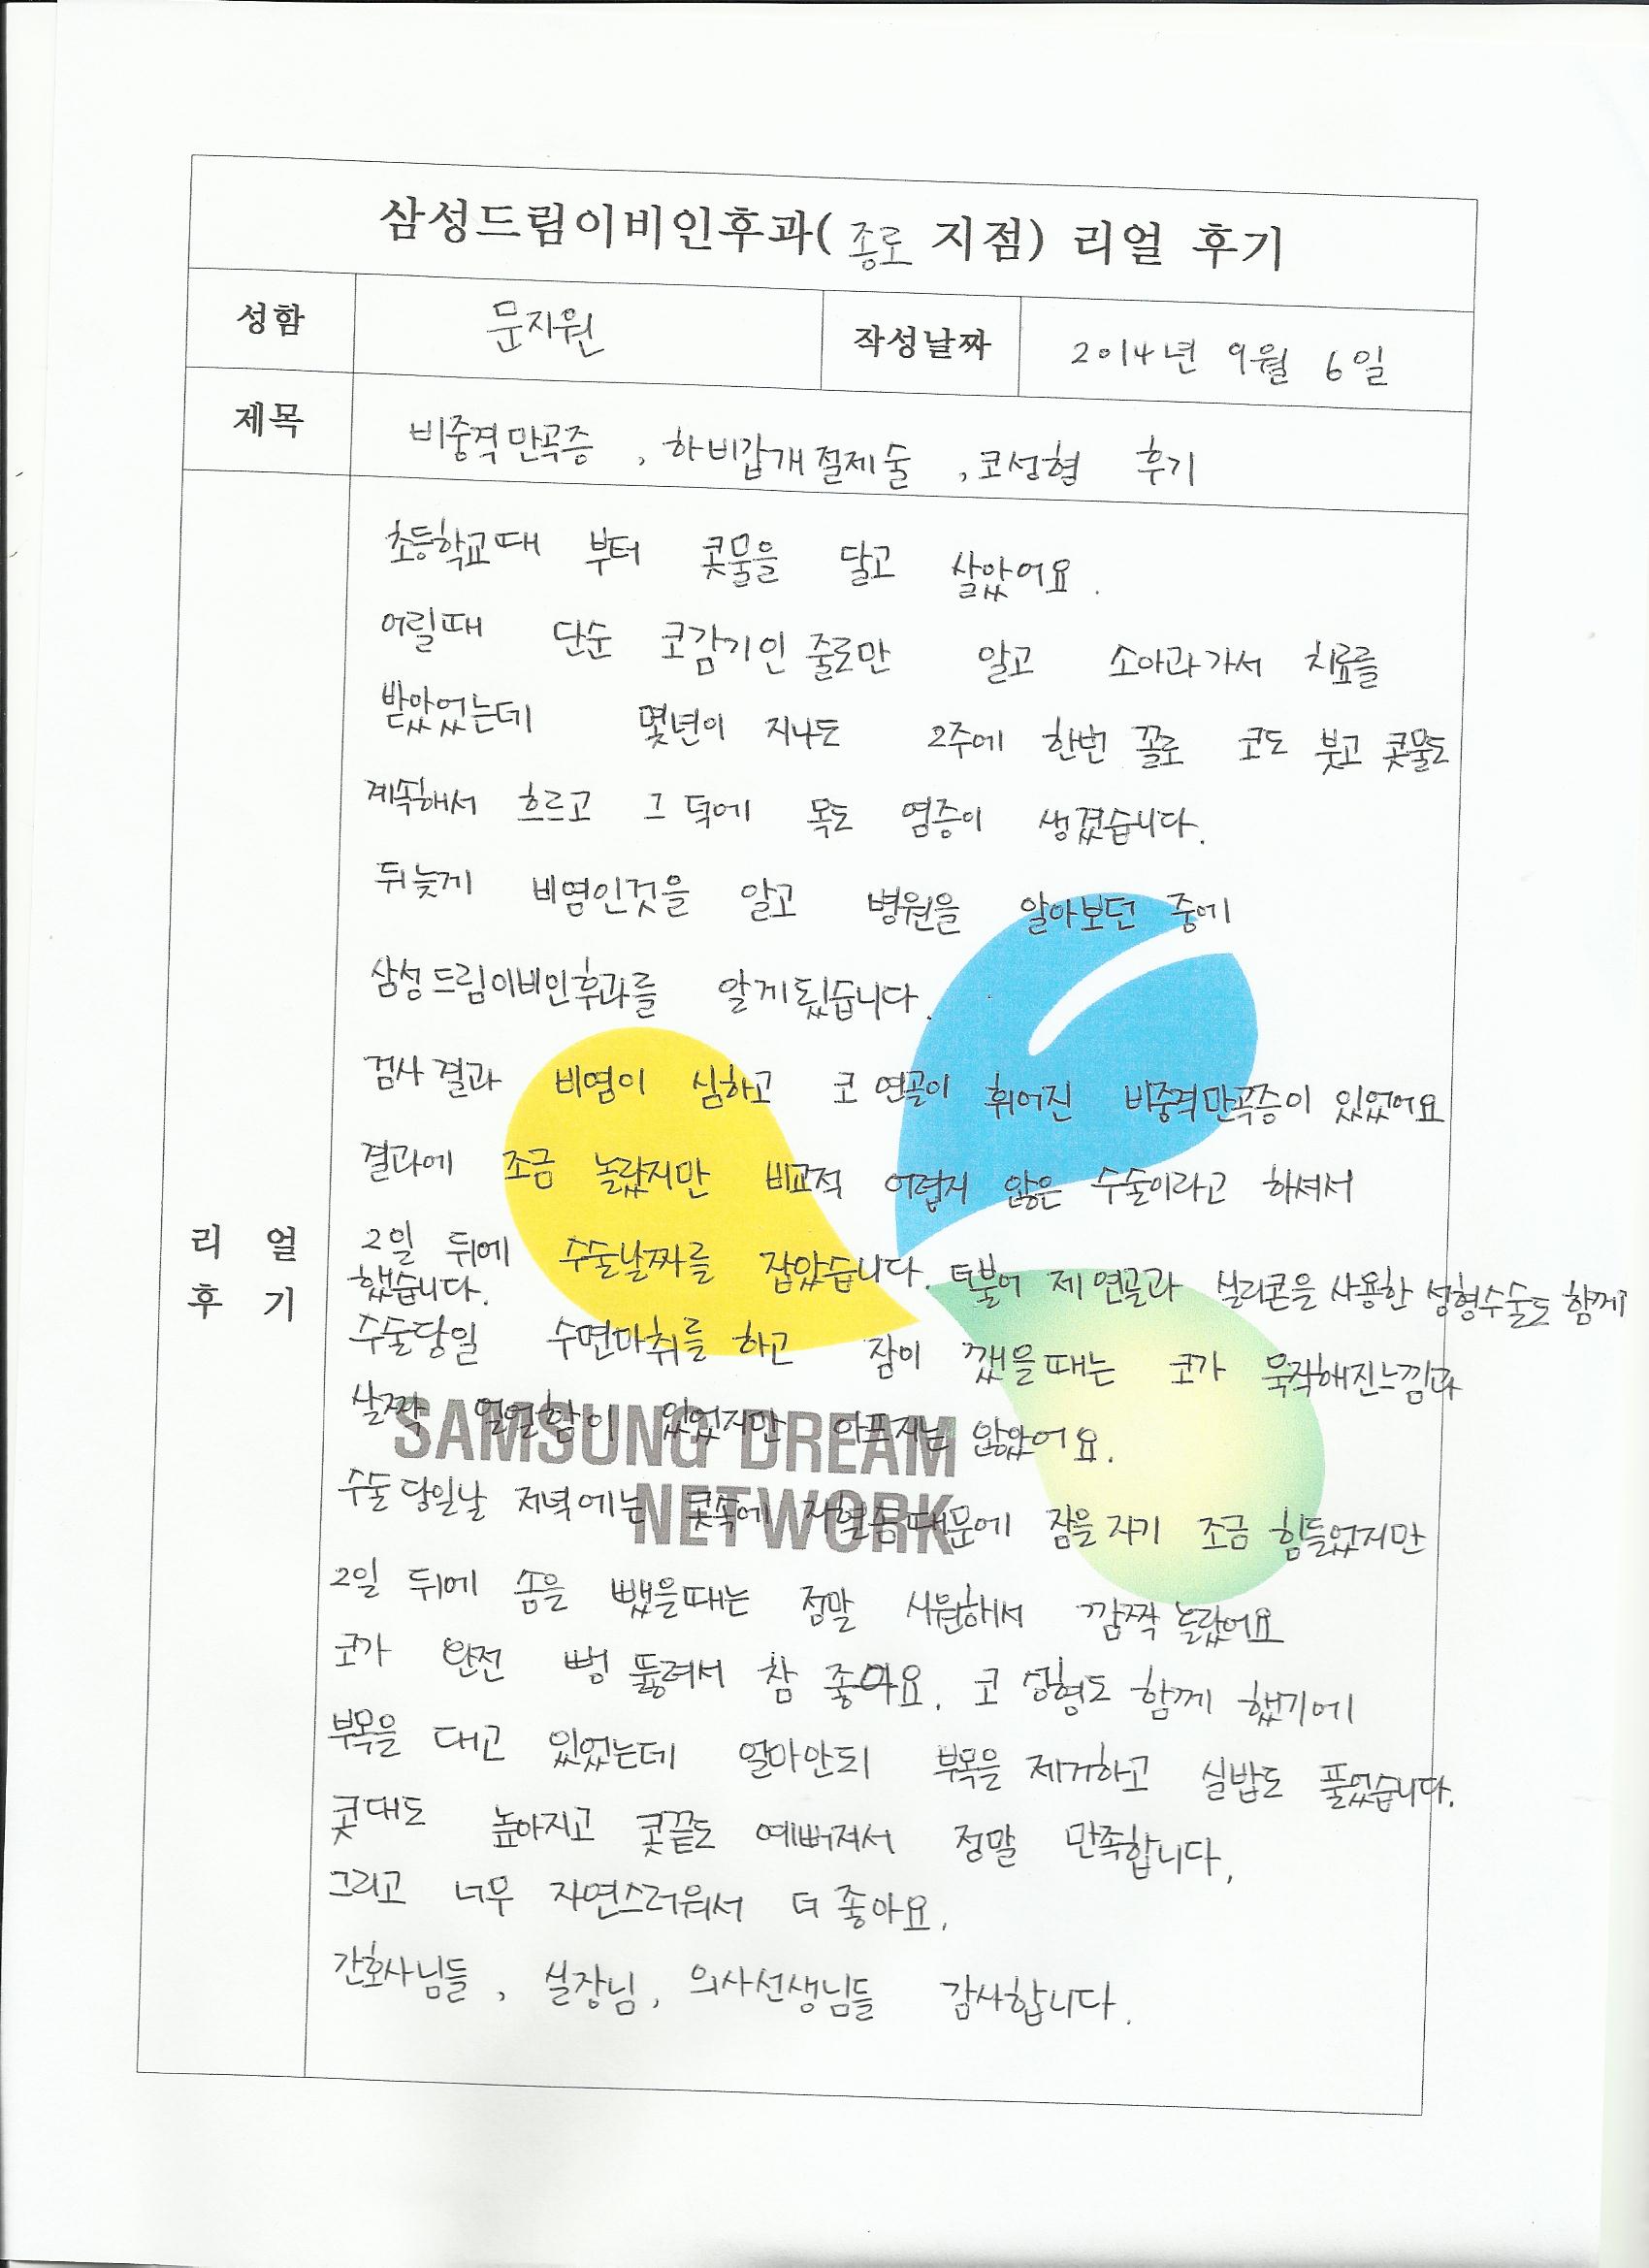 삼성드림이비인후과( 종로 지점) 리얼 후기
성함 문지원 작성날짜 2014년 9월 6일
제목 비중격만곡증 , 하비갑개절제술 , 코성형 후기
리 얼
후 기
초등학교때 부터 콧물을 달고 살았어요.
어릴때 단순 코감기인 줄로만 알고 소아과가서 치료를
받았었는데 몇년이 지나도 2주에 한번 꼴로 코도 붓고 콧물도
계속해서 흐르고 그 덕에 목도 염증이 생겼습니다.
뒤늦게 비염인것을 알고 병원을 알아보던 중에
삼성드림이비인후과를 알게됬습니다.
검사결과 비염이 심하고 코 연골이 휘어진 비중격만곡증이 있었어요
결과에 조금 놀랐지만 비교적 어렵지 않은 수술이라고 하셔서
2일 뒤에 수술날짜를 잡았습니다. 더불어 제 연골과 실리콘을 사용한 성형수술도 함께
했습니다.
수술당일 수면마취를 하고 잠이 깼을때는 코가 묵직해진느낌과
살짝 얼얼함이 있었지만 아프지는 않았어요.
수술당일날 저녁에는 콧속에 지혈솜때문에 잠을자기 조금 힘들었지만
2일 뒤에 솜을 뺐을때는 정말 시원해서 깜짝놀랐어요
코가 완전 뻥 뚫려서 참 좋아요. 코 성형도 함께 했기에
부목을 대고 있었는데 얼마안되 부목을 제거하고 실밥도 풀었습니다.
콧대도 높아지고 콧끝도 예뻐져서 정말 만족합니다.
그리고 너무 자연스러워서 더 좋아요.
간호사님들, 실장님, 의사선생님들 감사합니다.
SAMSUNG DREAM
NETWORK